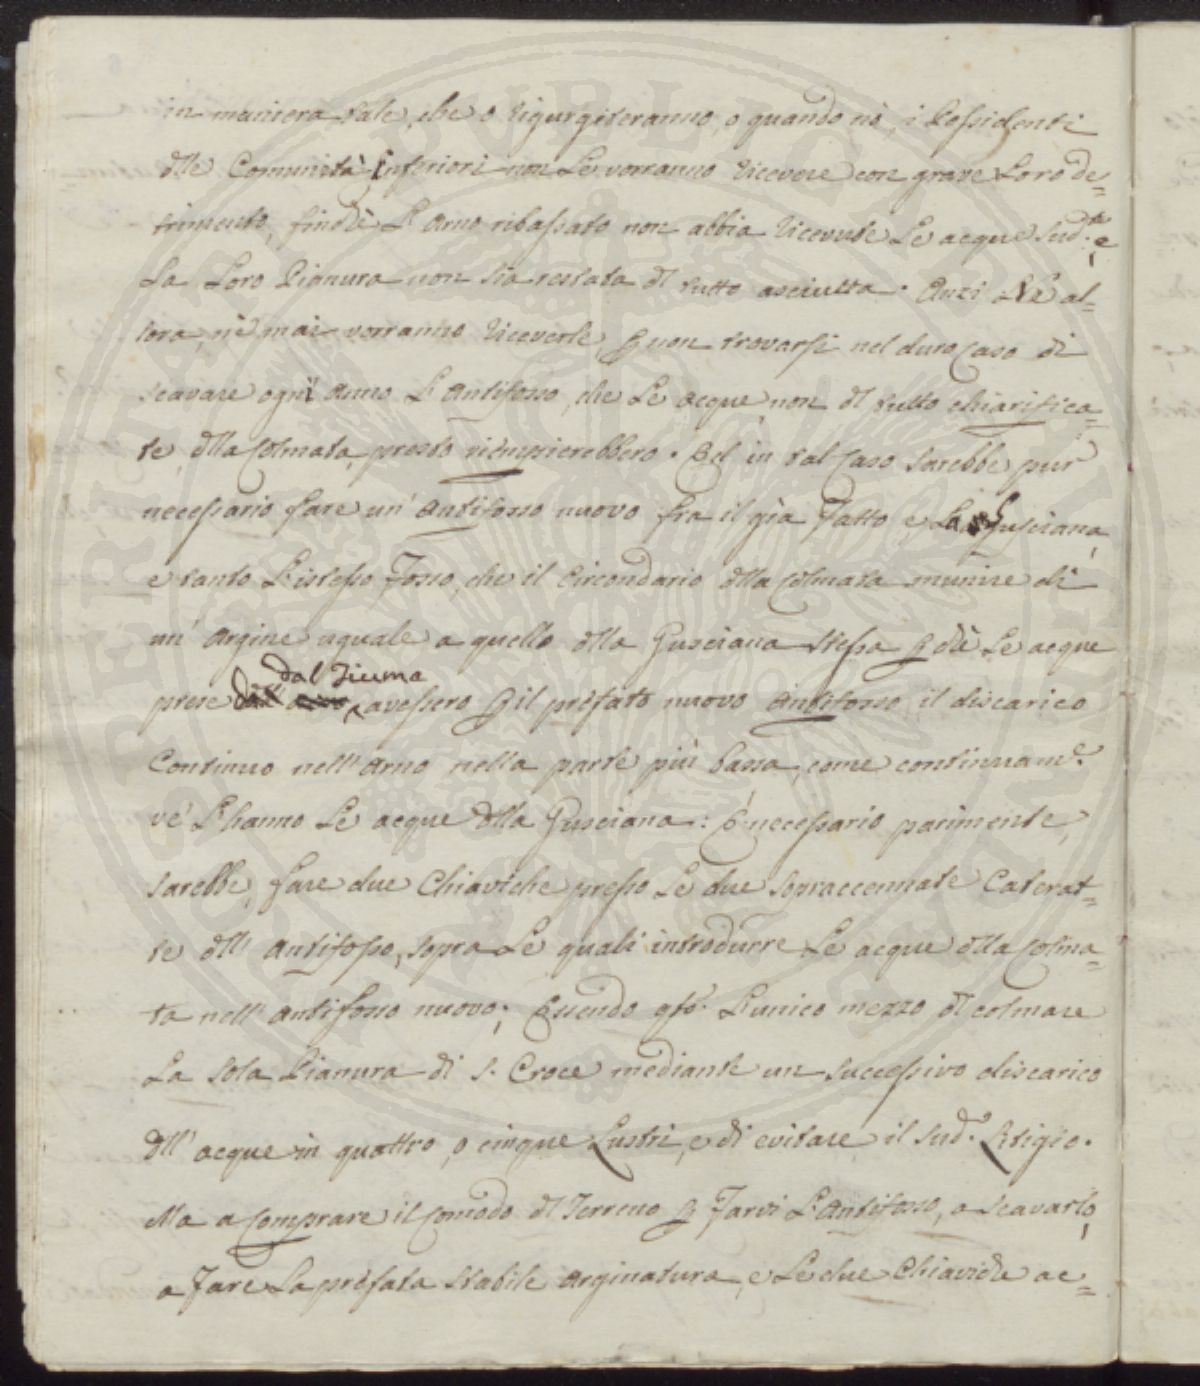 in maniera tale, che o rigurgiteranno, o quando nò, i Possidenti
dlle Comunità inferiori non Le vorranno ricevere con grave Loro de=
trimento, finchè L'Arno ribassato non abbia ricevute Le acque sud.te e
La Loro Pianura non sia restata dl tutto asciutta. Anzi Nè al=
lora, nè mai vorranno riceverle p non trovarsi nel duro Caso di
scavare ogni Anno L'Antifosso, che Le acque non dl tutto chiarifica=
te dlla Colmata, presto riempierebbero. Ed in tal Caso sarebbe pur
necessario fare un' Antifosso nuovo fra il già Fatto e La Gusciana,
e tanto L'istesso Fosso, che il Circondario dlla Colmata munire di
un' Argine uguale a quello dlla Gusciana stessa p chè Le acque
dal Fiume
prese avessero p il prefato nuovo Antifosso il discarico
Continuo nell' Arno nella parte più bassa, come continuam.e
ve L'hanno Le acque dlla Gusciana: E necessario parimente,
sarebbe, fare due Chiaviche presso Le due sopraccennate Caterat=
te dll' Antifosso, sopra Le quali introdurre Le acque dlla Colma=
ta nell' Antifosso nuovo; Essendo qsto. L'unico mezzo dl colmare
La sola Pianura di S. Croce mediante un successivo discarico
dll' acque in quattro, o cinque Lustri, e di evitare il sud.o Litigio.
Ma a Comprare il Comodo dl Terreno p Farvi L'Antifosso, a scavarlo,
a Fare La prefata stabile Arginatura, e Le due Chiaviche ac=